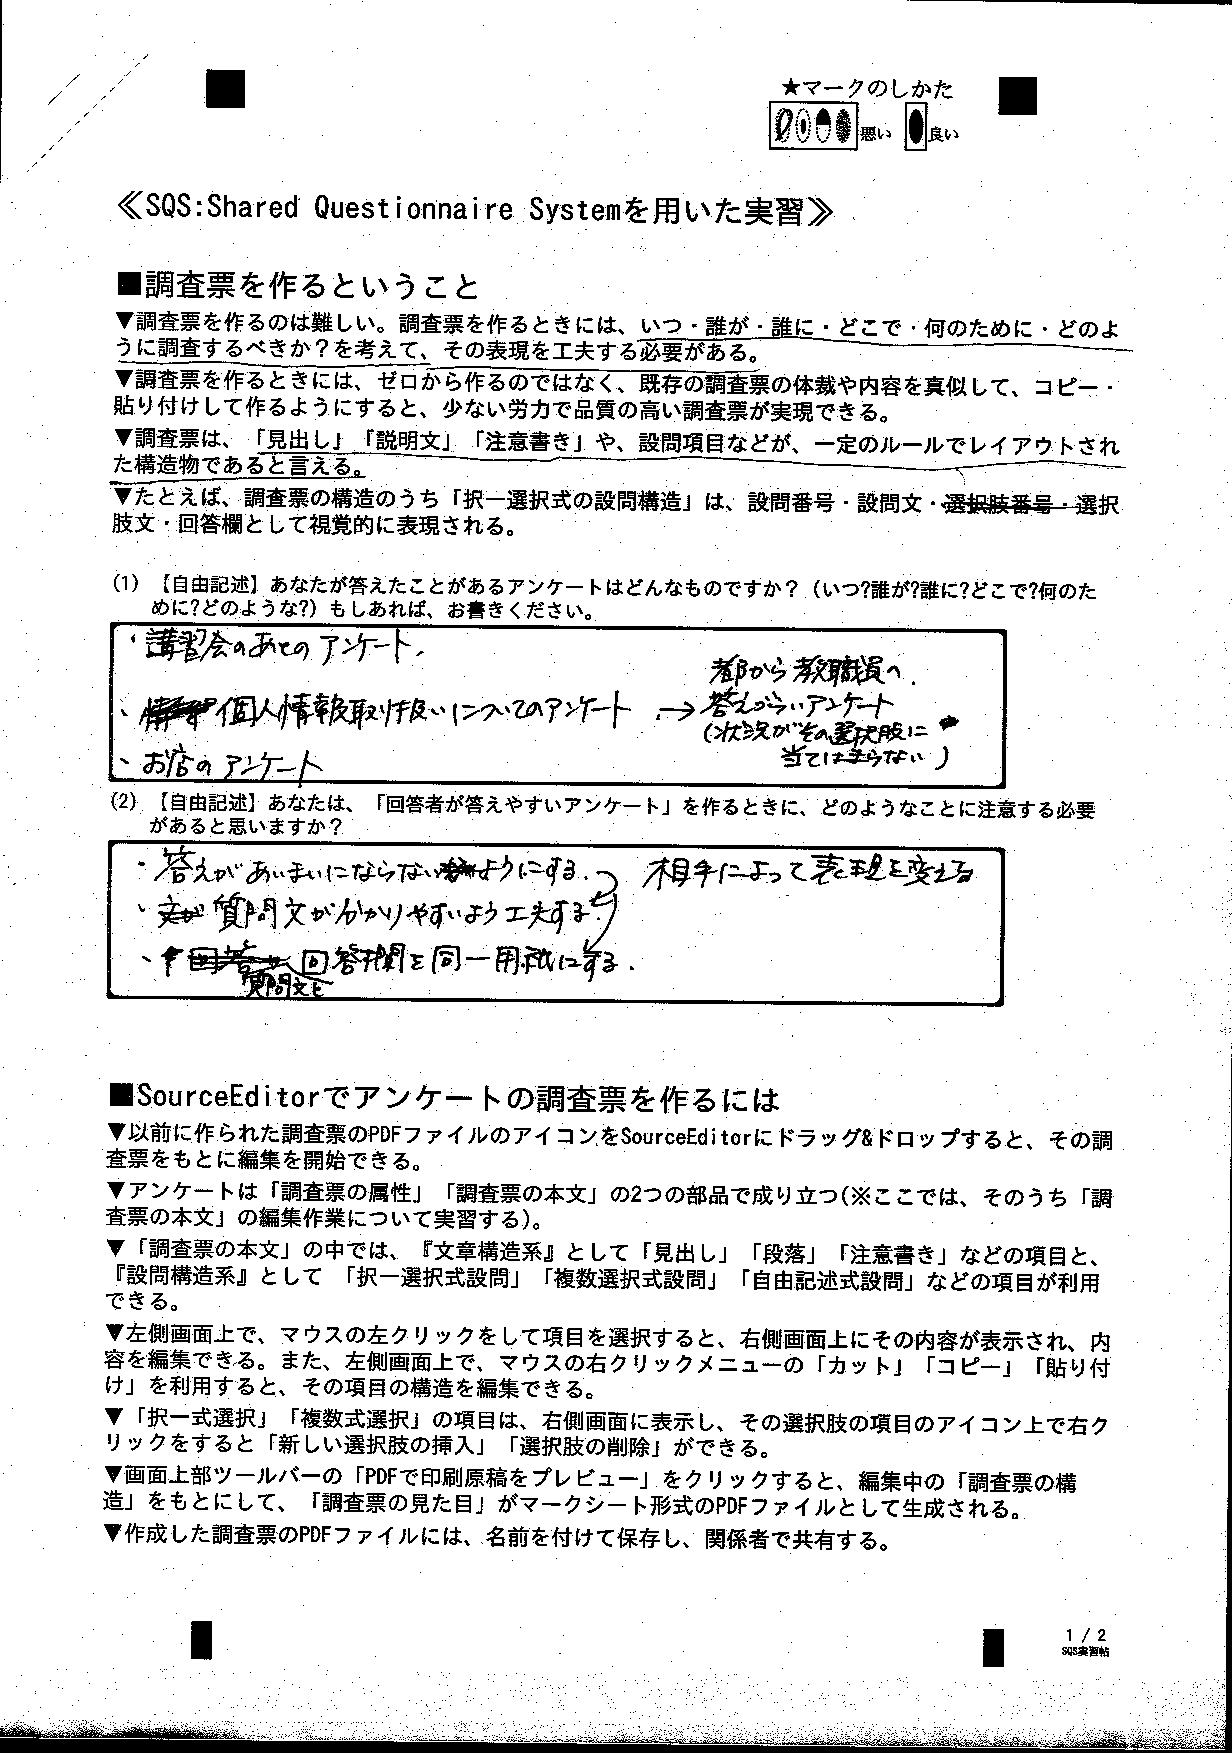 ★マークのしかた
悪い 良い
≪SQS:Shared Questionnaire Systemを用いた実習≫
■調査票を作るということ
▼調査票を作るのは難しい。調査票を作るときには、いつ・誰が・誰に・どこで・何のために・どのよ
うに調査するべきか？を考えて、その表現を工夫する必要がある。
▼調査票を作るときには、ゼロから作るのではなく、既存の調査票の体裁や内容を真似して、コピー・
貼り付けして作るようにすると、少ない労力で品質の高い調査票が実現できる。
▼調査票は、「見出し」「説明文」「注意書き」や、設問項目などが、一定のルールでレイアウトされ
た構造物であると言える。
▼たとえば、調査票の構造のうち「択一選択式の設問構造」は、設問番号・設問文・選択肢番号・選択
肢文・回答欄として視覚的に表現される。
(1) 【自由記述】あなたが答えたことがあるアンケートはどんなものですか？（いつ?誰が?誰に?どこで?何のた
めに?どのような?）もしあれば、お書きください。
・講習会のあとのアンケート.
、個人情報取り扱いについてのアンケート
都から教職員へ.
→答えづらいアンケート
(状況がその選択肢に
当てはまらない)
、お店のアンケート
(2) 【自由記述】あなたは、「回答者が答えやすいアンケート」を作るときに、どのようなことに注意する必要
があると思いますか？
・答えがあいまいにならないようにする. 相手によって表現を変える
・質問文が分かりやすいよう工夫する
、回答欄を同一用紙にする.
質問文と
■SourceEditorでアンケートの調査票を作るには
▼以前に作られた調査票のPDFファイルのアイコンをSourceEditorにドラッグ&ドロップすると、その調
査票をもとに編集を開始できる。
▼アンケートは「調査票の属性」「調査票の本文」の2つの部品で成り立つ(※ここでは、そのうち「調
査票の本文」の編集作業について実習する)。
▼「調査票の本文」の中では、『文章構造系』として「見出し」「段落」「注意書き」などの項目と、
『設問構造系』として 「択一選択式設問」「複数選択式設問」「自由記述式設問」などの項目が利用
できる。
▼左側画面上で、マウスの左クリックをして項目を選択すると、右側画面上にその内容が表示され、内
容を編集できる。また、左側画面上で、マウスの右クリックメニューの「カット」「コピー」「貼り付
け」を利用すると、その項目の構造を編集できる。
▼「択一式選択」「複数式選択」の項目は、右側画面に表示し、その選択肢の項目のアイコン上で右ク
リックをすると「新しい選択肢の挿入」「選択肢の削除」ができる。
▼画面上部ツールバーの「PDFで印刷原稿をプレビュー」をクリックすると、編集中の「調査票の構
造」をもとにして、「調査票の見た目」がマークシート形式のPDFファイルとして生成される。
▼作成した調査票のPDFファイルには、名前を付けて保存し、関係者で共有する。
1 / 2
SQS実習帖